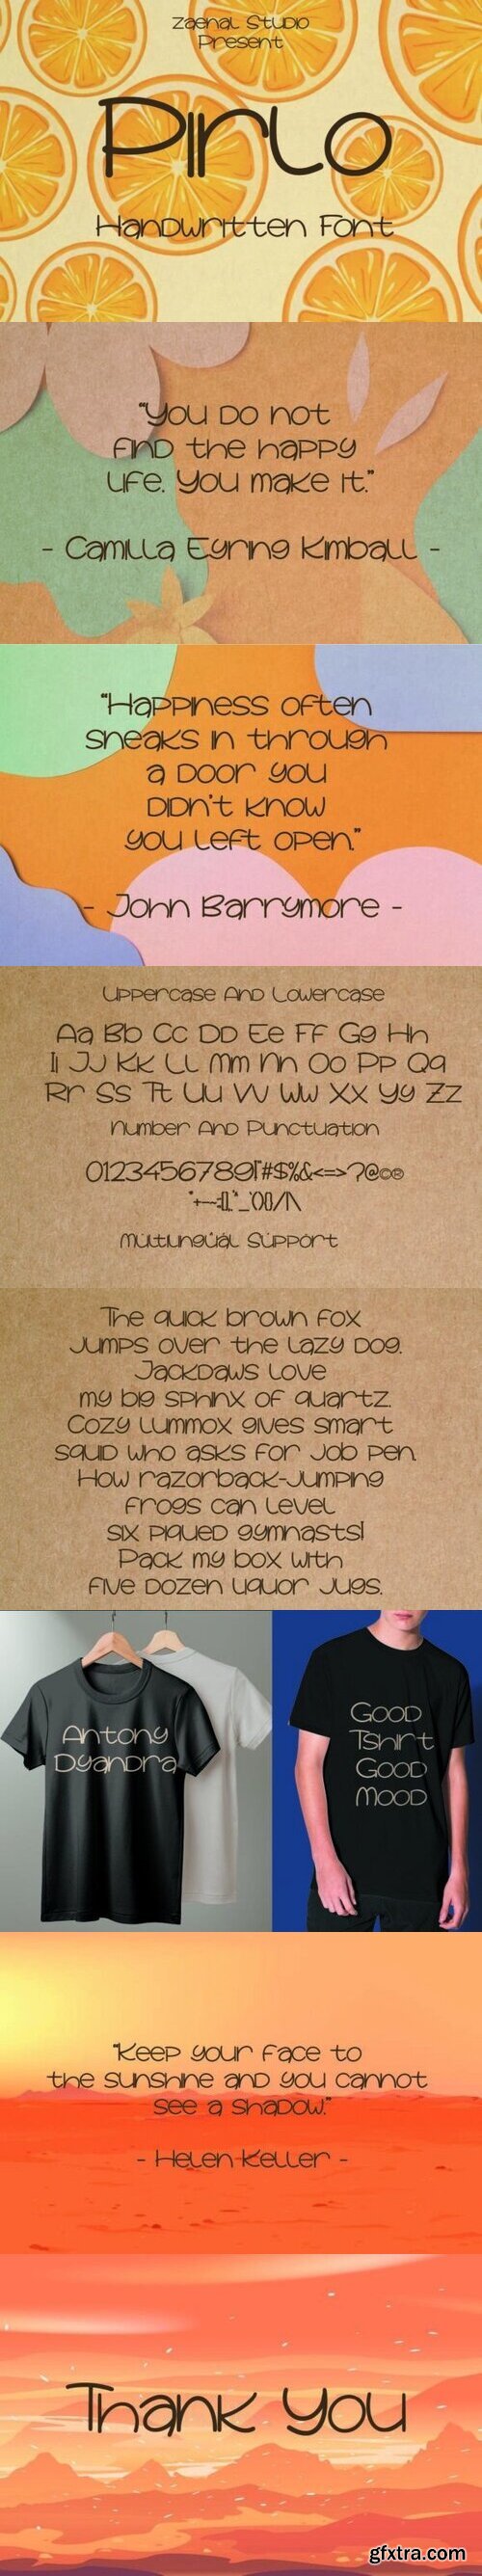 Zaenal Studio
Present
Pirlo
Handwritten Font
“You do not
find the happy
life. You make it.”
- Camilla Eyring Kimball -
“Happiness often
sneaks in through
a door you
didn't know
you left open.”
- John Barrymore -
Uppercase And Lowercase
Aa Bb Cc Dd Ee Ff Gg Hh
Ii Jj Kk Ll Mm Nn Oo Pp Qq
Rr Ss Tt Uu Vv Ww Xx Yy Zz
Number And Punctuation
0123456789!"#$%&<=>?@©®
Multilingual Support
The quick brown fox
jumps over the lazy dog.
Jackdaws love
my big sphinx of quartz.
Cozy lummox gives smart
squid who asks for job pen.
How razorback-jumping
frogs can level
six piqued gymnasts!
Pack my box with
five dozen liquor jugs.
Antony
Dyandra
Good
Tshirt
Good
Mood
“Keep your face to
the sunshine and you cannot
see a shadow.”
- Helen Keller -
Thank You
gfxtra.com